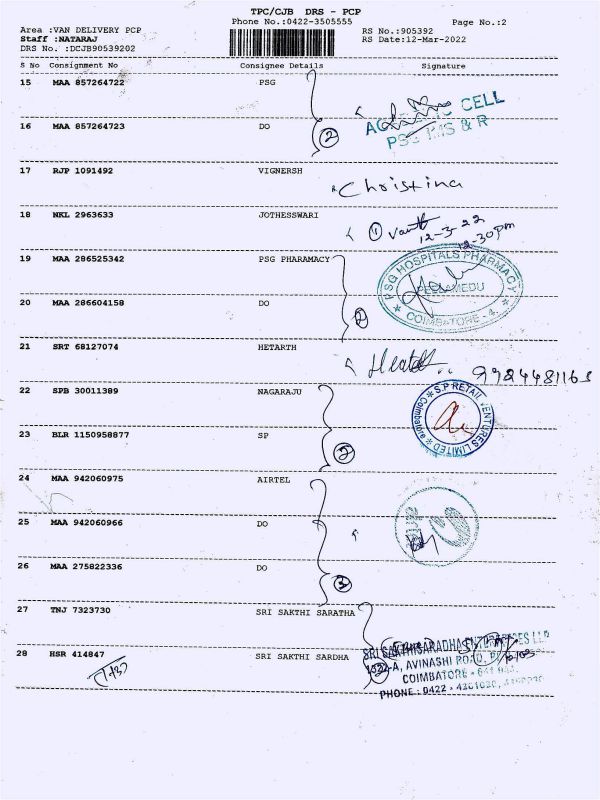 TPC/CJB DRS - PCP
Phone No.:0422-3505555
Page No.:2
Area :VAN DELIVERY PCP
RS No.:905392
Staff :NATARAJ
RS Date:12-Mar-2022
DRS No. :DCJB90539202
S No Consignment No Consignee Details Signature
15 MAA 857264722 PSG
CELL
PSG IMS & R
16 MAA 857264723 DO
2
17 RJP 1091492 VIGNERSH
Christina
18 NKL 2963633 JOTHESSWARI
1
12-3-22
12-30pm
19 MAA 286525342 PSG PHARAMACY
PSG HOSPITALS PHARMACY
PEELAMEDU
COIMBATORE - 4.
20 MAA 286604158 DO
21 SRT 68127074 HETARTH
22 SPB 30011389 NAGARAJU
S.P RETAIL VENTURES LIMITED
Coimbatore
23 BLR 1150958877 SP
2
24 MAA 942060975 AIRTEL
25 MAA 942060966 DO
26 MAA 275822336 DO
3
27 TNJ 7323730 SRI SAKTHI SARATHA
28 HSR 414847 SRI SAKTHI SARDHA
SRI SAKTHI SARADHA ENTERPRISES LLP
-A, AVINASHI ROAD,
COIMBATORE
PHONE : 0422 -